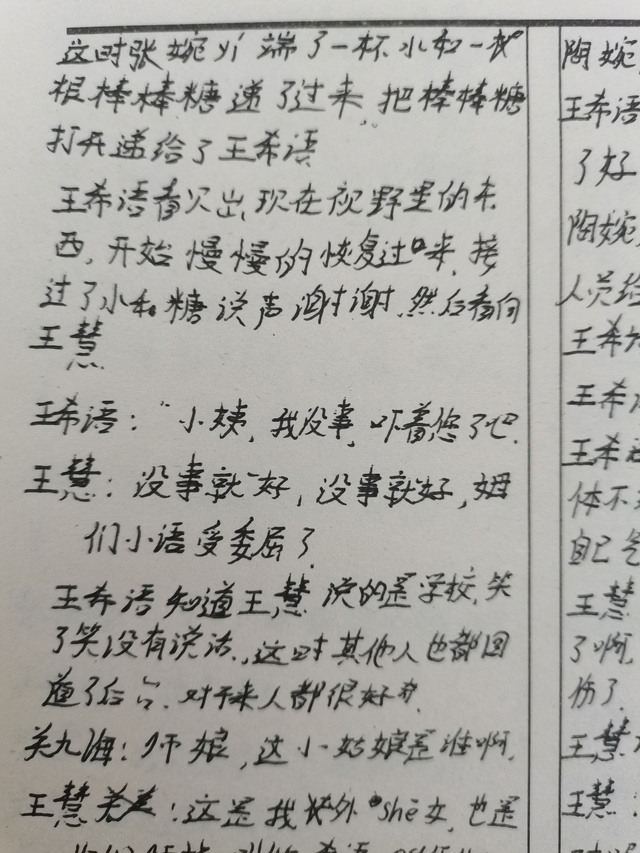 这时张婉yi端了一杯水和一
根棒棒糖递了过来,把棒棒糖
打开递给了王希语
王希语看火出现在视野里的东
西,开始慢慢的恢复过来,接
过了水和糖说声谢谢,然后看向
王慧
王希语:“小姨,我没事,吓着您了吧.
王慧:没事就好,没事就好,姆
们小语受委屈了
王希语知道王慧说的是学校,笑
了笑没有说话,这时其他人也都回
道了后台.对于来人都很好奇
关九海:师娘,这小姑娘是谁啊.
王慧:这是我外she女,也是
陶婉
王希语
了好
陶婉
人员给
王希
王希
王希
体不
自己
王慧
了啊,
伤了.
王慧
王慧: